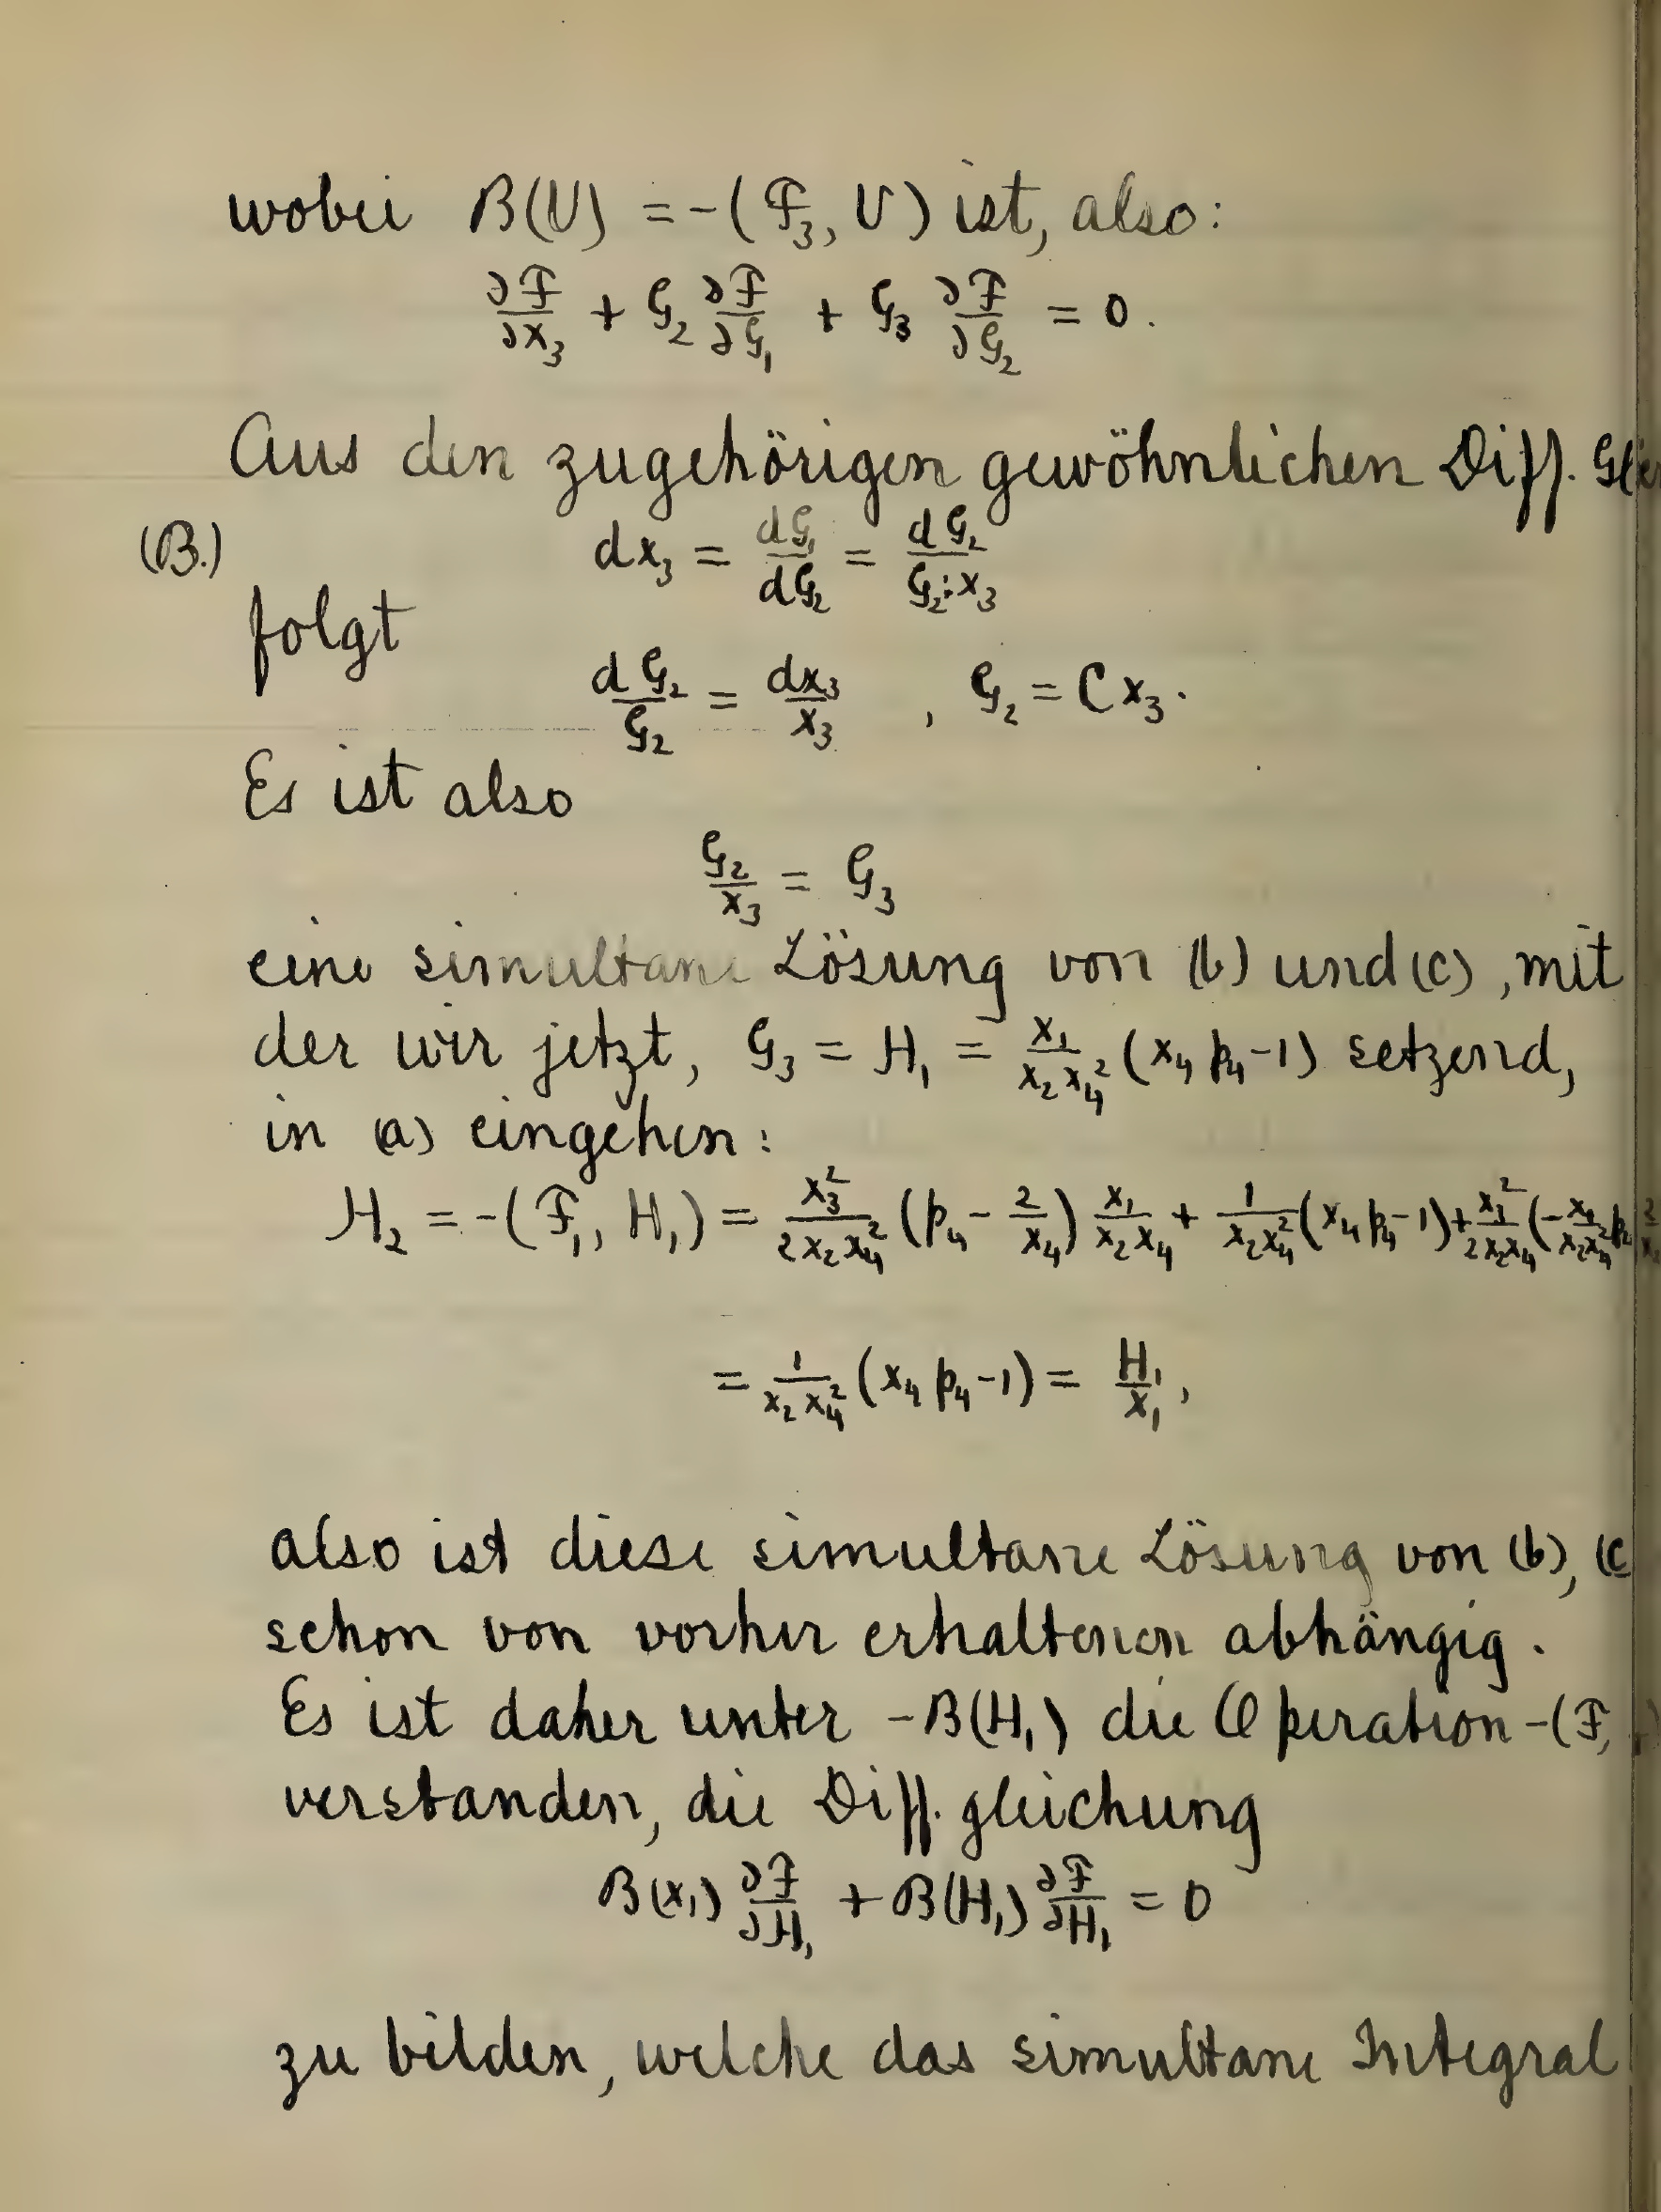 wobei B(U) = -(F₃, U) ist, also:
∂F/∂x₃ + G₂ ∂F/∂G₁ + G₃ ∂F/∂G₂ = 0.
Aus den zugehörigen gewöhnlichen Diff.
(B.) dx₃ = dG₁/dG₂ = dG₂/G₂:x₃
folgt
dG₂/G₂ = dx₃/x₃ , G₂ = Cx₃.
Es ist also
G₂/x₃ = G₃
eine simultane Lösung von (b) und (c), mit
der wir jetzt, G₃ = H₁ = x₁/x₂x₄² (x₄p₄-1) setzend,
in (a) eingehen:
H₂ = -(F₁, H₁) = x₃²/2x₂x₄² (p₄ - 2/x₄) x₁/x₂x₄ + 1/x₂x₄² (x₄p₄-1) + x₃²/2x₂x₄ (-x₁/x₂x₄² p₄
= 1/x₂x₄² (x₄p₄-1) = H₁/x₁,
also ist diese simultane Lösung von (b), (c
schon von vorher erhaltenen abhängig.
Es ist daher unter -B(H₁) die Operation -(F,
verstanden, die Diff. gleichung
B(x₁) ∂F/∂H₁ + B(H₁) ∂F/∂H₁ = 0
zu bilden, welche das simultane Integral